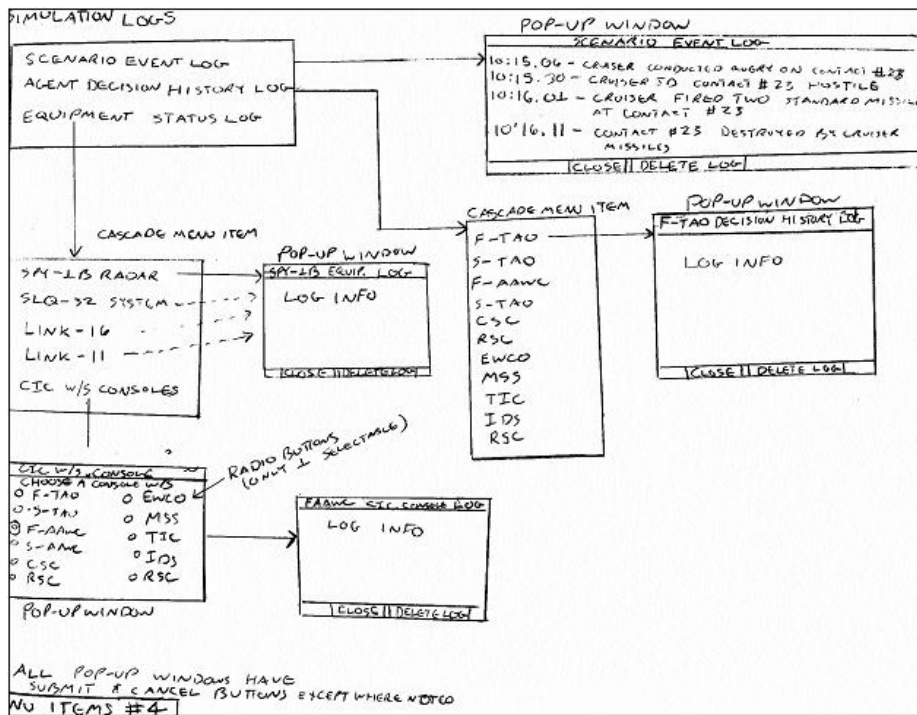 SIMULATION LOGS
SCENARIO EVENT LOG
AGENT DECISION HISTORY LOG
EQUIPMENT STATUS LOG
POP-UP WINDOW
SCENARIO EVENT LOG
10:15.06 - CRUSER CONDUCTED QUERY ON CONTACT #23
10:15.30 - CRUISER ID CONTACT #23 HOSTILE
10:16.01 - CRUISER FIRED TWO STANDARD MISSILE
AT CONTACT #23
10:16.11 - CONTACT #23 DESTROYED BY CRUISER
MISSILES
CLOSE DELETE LOG
CASCADE MENU ITEM
SPY-1B RADAR
SLQ-32 SYSTEM
LINK-16
LINK-11
CIC W/S CONSOLES
POP-UP WINDOW
SPY-1B EQUIP. LOG
LOG INFO
CLOSE DELETE LOG
CASCADE MENU ITEM
F-TAO
S-TAO
F-AAWC
S-TAO
CSC
RSC
EWCO
MSS
TIC
IDS
RSC
POP-UP WINDOW
F-TAO DECISION HISTORY LOG
LOG INFO
CLOSE DELETE LOG
CIC W/S CONSOLE
CHOOSE A CONSOLE W/S
F-TAO
S-TAO
F-AAWC
S-AAWC
CSC
RSC
EWCO
MSS
TIC
IDS
RSC
POP-UP WINDOW
RADIO BUTTONS
(ONLY 1 SELECTABLE)
FAAWC CIC CONSOLE LOG
LOG INFO
CLOSE DELETE LOG
ALL POP-UP WINDOWS HAVE
SUBMIT & CANCEL BUTTONS EXCEPT WHERE NOTED
NU ITEMS #4